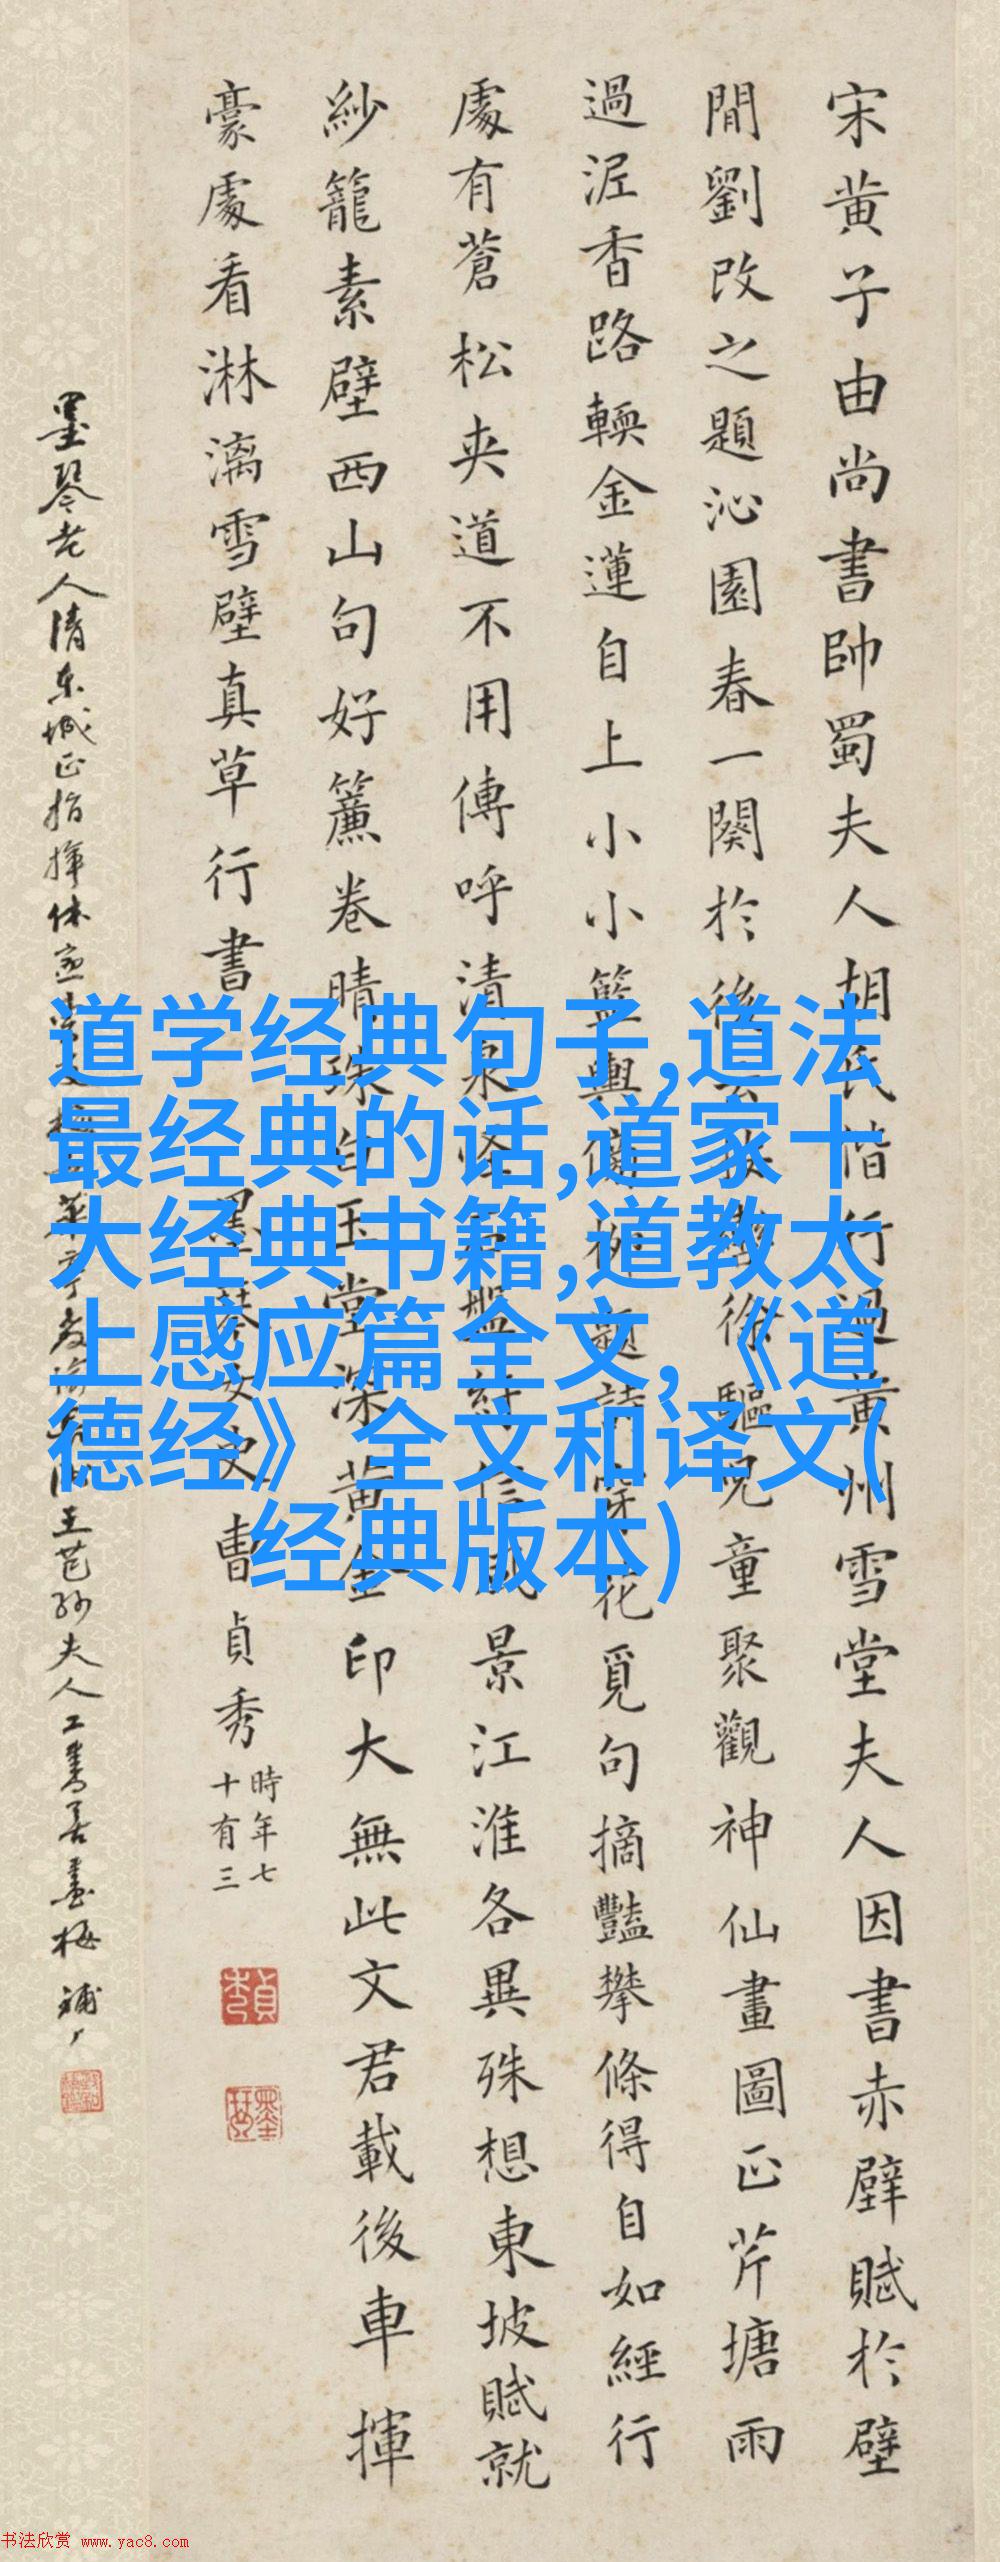 宋黄子由尚書帥蜀夫人胡氏偕行過黄州雪堂夫人因書赤壁賦於壁
間劉改之題沁園春一闋於後云按轡徐驅兒童聚觀神仙畫圖正芹塘雨
過泥香路輭金蓮自上小小籃輿傍柳題詩穿花覓句摘豔攀條得自如經行
處有蒼松夾道不用傳呼清泉怪石盤紆信風景江淮各異殊想東坡賦就
紗籠素壁西山句好簾卷晴珠白玉堂深黄金印大無此文君載後車揮
豪處看淋漓雪壁真草行書
墨琴女史曹貞秀
時年七
十有三
墨琴老人清東城正指揮休王芑孫夫人工書善畫梅
道学经典句子,道法
最经典的话,道家十
大经典书籍,道教太
上感应篇全文,《道
德经》全文和译文(
经典版本)
书法欣赏 www.yac8.com